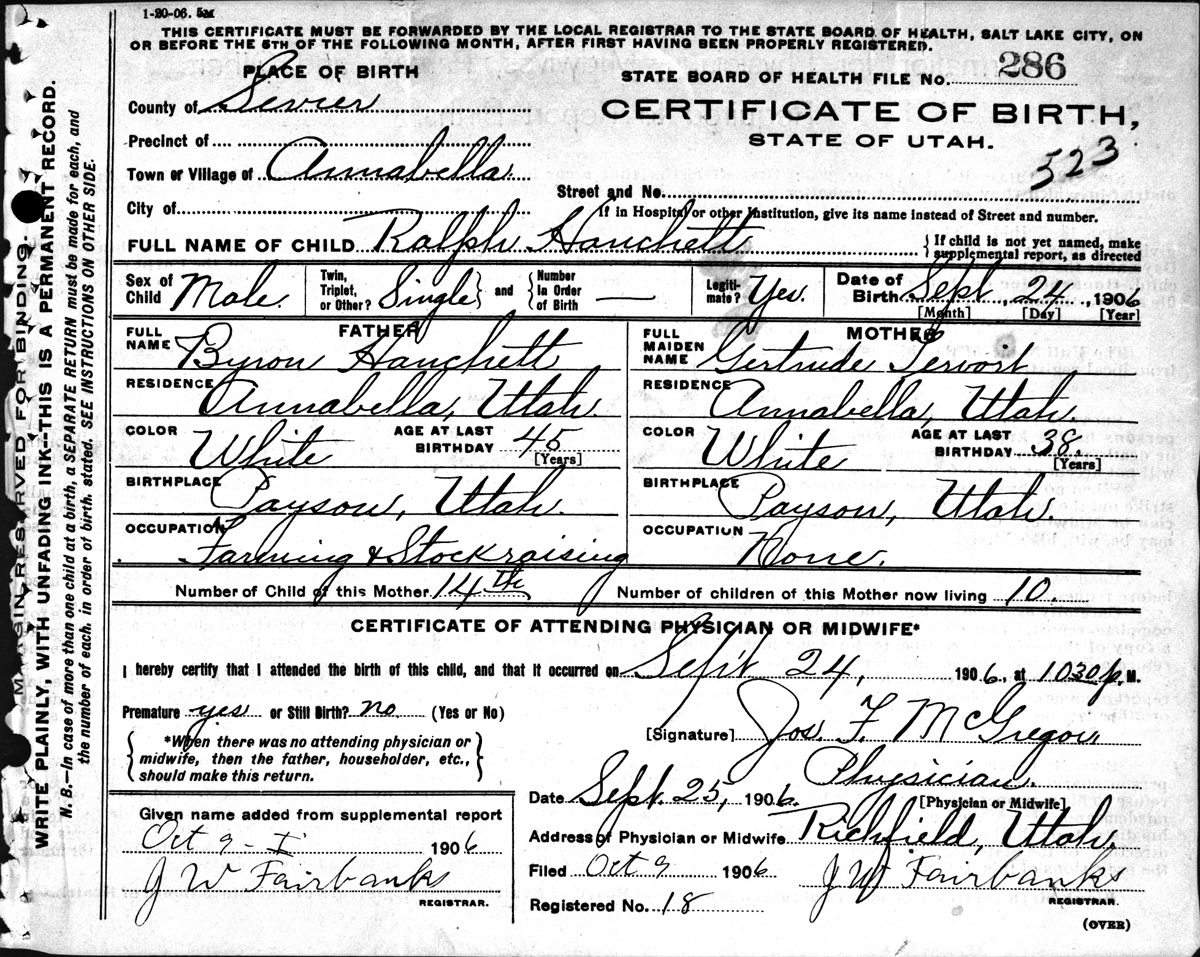 1-20-06. 5M
THIS CERTIFICATE MUST BE FORWARDED BY THE LOCAL REGISTRAR TO THE STATE BOARD OF HEALTH, SALT LAKE CITY, ON
OR BEFORE THE 5TH OF THE FOLLOWING MONTH, AFTER FIRST HAVING BEEN PROPERLY REGISTERED.
MARGIN RESERVED FOR BINDING.
WRITE PLAINLY, WITH UNFADING INK--THIS IS A PERMANENT RECORD.
N. B.—In case of more than one child at a birth, a SEPARATE RETURN must be made for each, and
the number of each, in order of birth, stated. SEE INSTRUCTIONS ON OTHER SIDE.
PLACE OF BIRTH
County of Sevier
Precinct of
Town or Village of Annabella
City of
STATE BOARD OF HEALTH FILE NO. 286
CERTIFICATE OF BIRTH,
STATE OF UTAH.
523
Street and No.
If in Hospital or other Institution, give its name instead of Street and number.
FULL NAME OF CHILD Ralph Hanchett
{ If child is not yet named, make
supplemental report, as directed
Sex of Child Male.
Twin, Triplet, or Other? Single } and { Number In Order of Birth —
Legiti-mate? Yes.
Date of Birth Sept. 24, 1906
[Month] [Day] [Year]
FATHER
FULL NAME Byron Hanchett
RESIDENCE Annabella, Utah.
COLOR White AGE AT LAST BIRTHDAY 45
[Years]
BIRTHPLACE Payson, Utah.
OCCUPATION Farming & Stockraising
MOTHER
FULL MAIDEN NAME Gertrude
RESIDENCE Annabella, Utah.
COLOR White AGE AT LAST BIRTHDAY 38.
[Years]
BIRTHPLACE Payson, Utah.
OCCUPATION None.
Number of Child of this Mother 14th Number of children of this Mother now living 10.
CERTIFICATE OF ATTENDING PHYSICIAN OR MIDWIFE*
I hereby certify that I attended the birth of this child, and that it occurred on Sept. 24, 1906, at 1030 p. M.
Premature yes or Still Birth? no (Yes or No)
{ *When there was no attending physician or
midwife, then the father, householder, etc.,
should make this return. }
[Signature] Jos. F. McGregor
Physician.
[Physician or Midwife]
Date Sept. 25, 1906.
Address of Physician or Midwife Richfield, Utah.
Filed Oct 9 1906 J W Fairbanks
REGISTRAR.
Registered No. 18
Given name added from supplemental report
Oct 9 - 1906
J W Fairbanks
REGISTRAR.
(OVER)